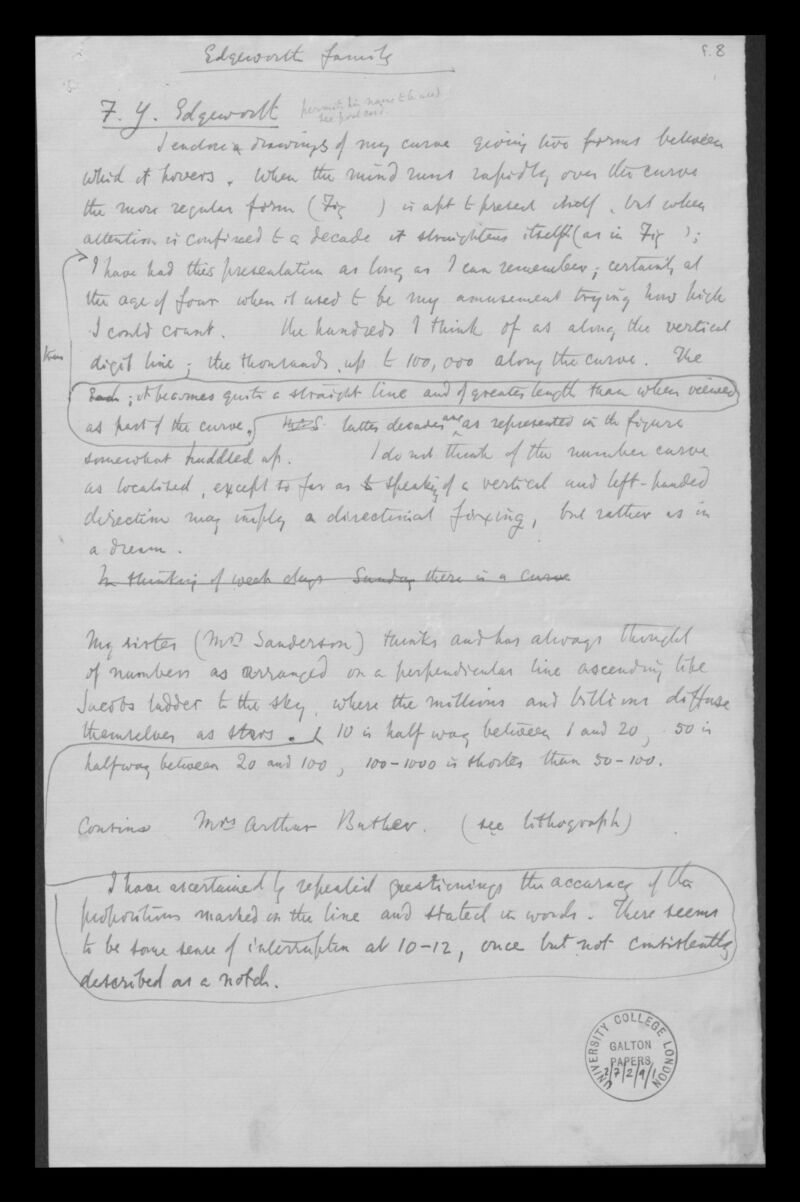 Edgeworth family
F. Y. Edgeworth permits his name to be used
see post card
I enclose drawings of my curve giving two forms between
which it hovers. When the mind runs rapidly over the curve
the more regular form (Fig ) is apt to present itself, but when
attention is confined to a decade it straightens itself (as in Fig );
I have had this presentation as long as I can remember; certainly at
the age of four when it used to be my amusement trying how high
I could count. The hundreds I think of as along the vertical
digit line; the thousands, up to 100,000 along the curve. The
; it becomes quite a straight line and of greater length than when viewed
as part of the curve. latter decades are as represented in the figure
somewhat huddled up. I do not think of the number curve
as localised, except so far as speaking of a vertical and left-handed
direction may imply a directional fixing, but rather as in
a dream.
In thinking of week days Sunday there is a curve
My sister (Mrs Sanderson) thinks and has always thought
of numbers as arranged on a perpendicular line ascending like
Jacobs ladder to the sky, where the millions and billions diffuse
themselves as stars. 10 is half way between 1 and 20, 50 is
halfway between 20 and 100, 100-1000 is shorter than 50-100.
Cousins Mrs Arthur Butler. (see lithograph)
I have ascertained by repeated questionings the accuracy of the
propositions marked on the line and stated in words. There seems
to be some sense of interruption at 10-12, once but not consistently
described as a notch.
UNIVERSITY COLLEGE LONDON
GALTON
PAPERS
2/7/2/9/1